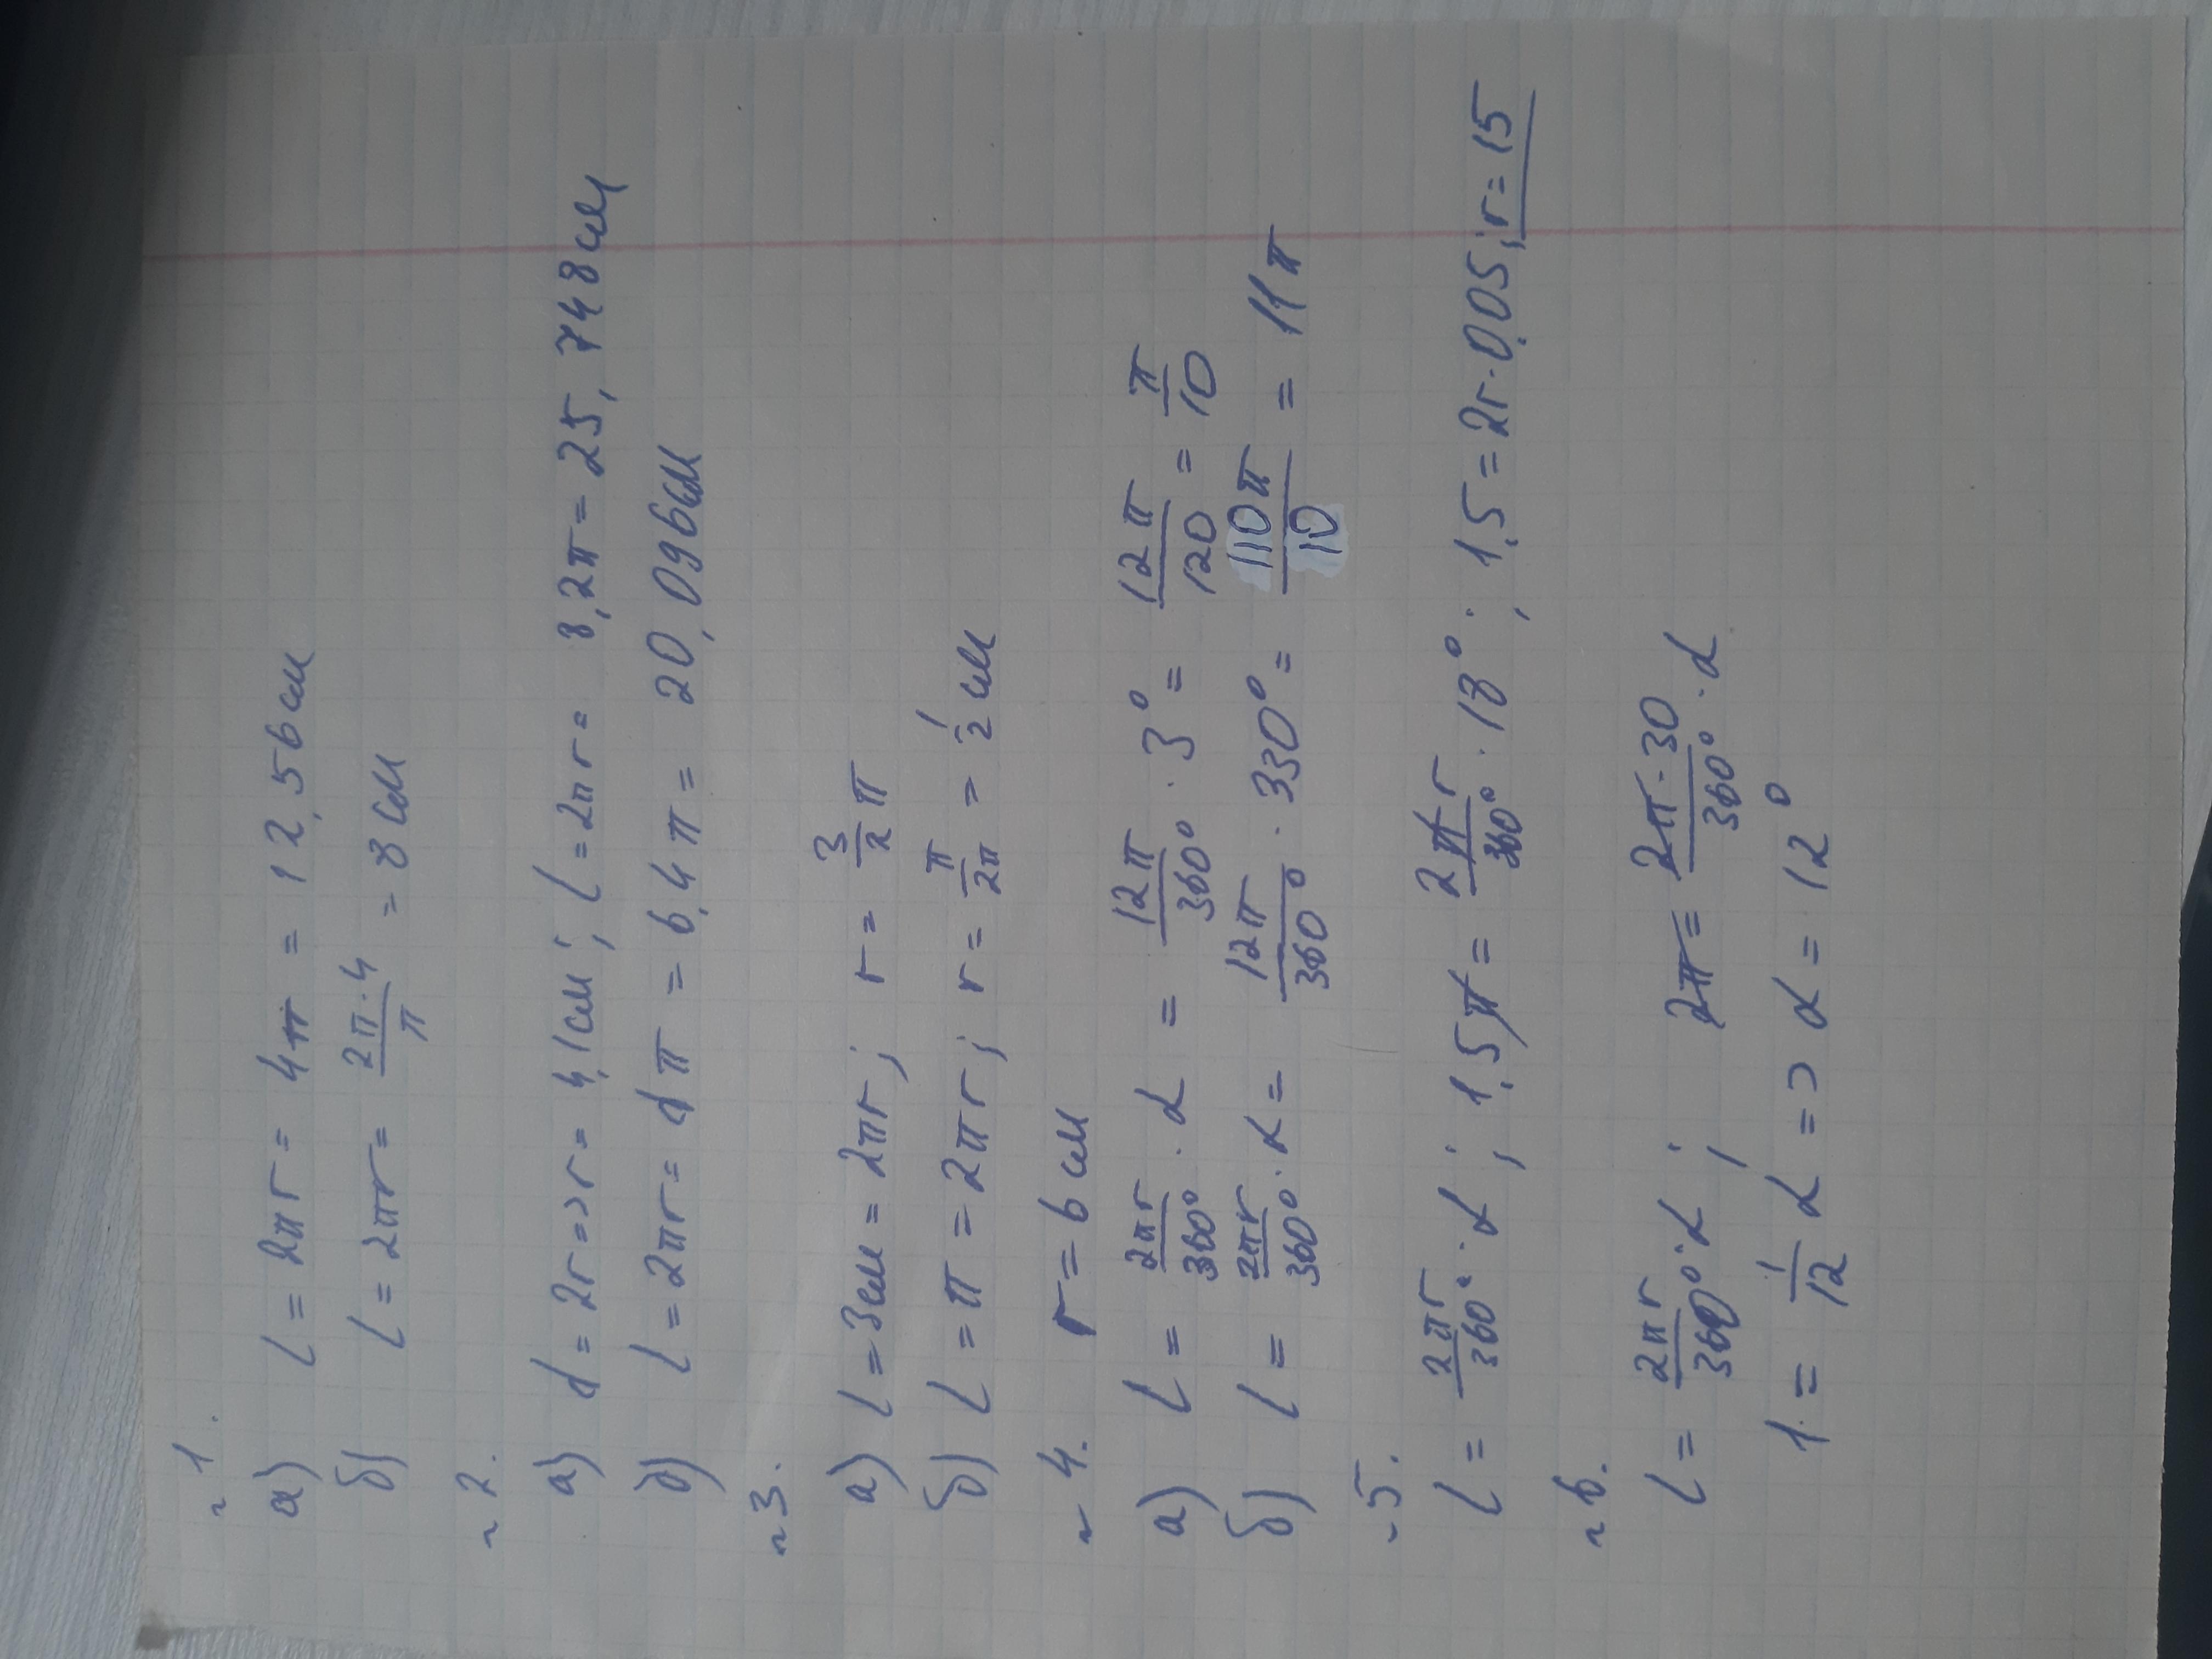 ~ 1.
а) l = 2πr = 4π = 12,56 см
б) l = 2πr = 2π·4/π = 8 см
~ 2.
а) d = 2r => r = 4,1 см; l = 2πr = 8,2π = 25,748 см
б) l = 2πr = dπ = 6,4π = 20,096 см
~ 3.
а) l = 3 см = 2πr; r = 3/2 π
б) l = π = 2πr; r = π/2π = 1/2 см
~ 4. r = 6 см
а) l = 2πr/360° · α = 12π/360° · 3° = 12π/120 = π/10
б) l = 2πr/360° · α = 12π/360° · 330° = 110π/10 = 11π
~ 5.
l = 2πr/360° · α; 1,5π = 2πr/360° · 18°; 1,5 = 2r · 0,05; r = 15
~ 6.
l = 2πr/360° · α; 2π = 2π·30/360° · α
1 = 1/12 α => α = 12°